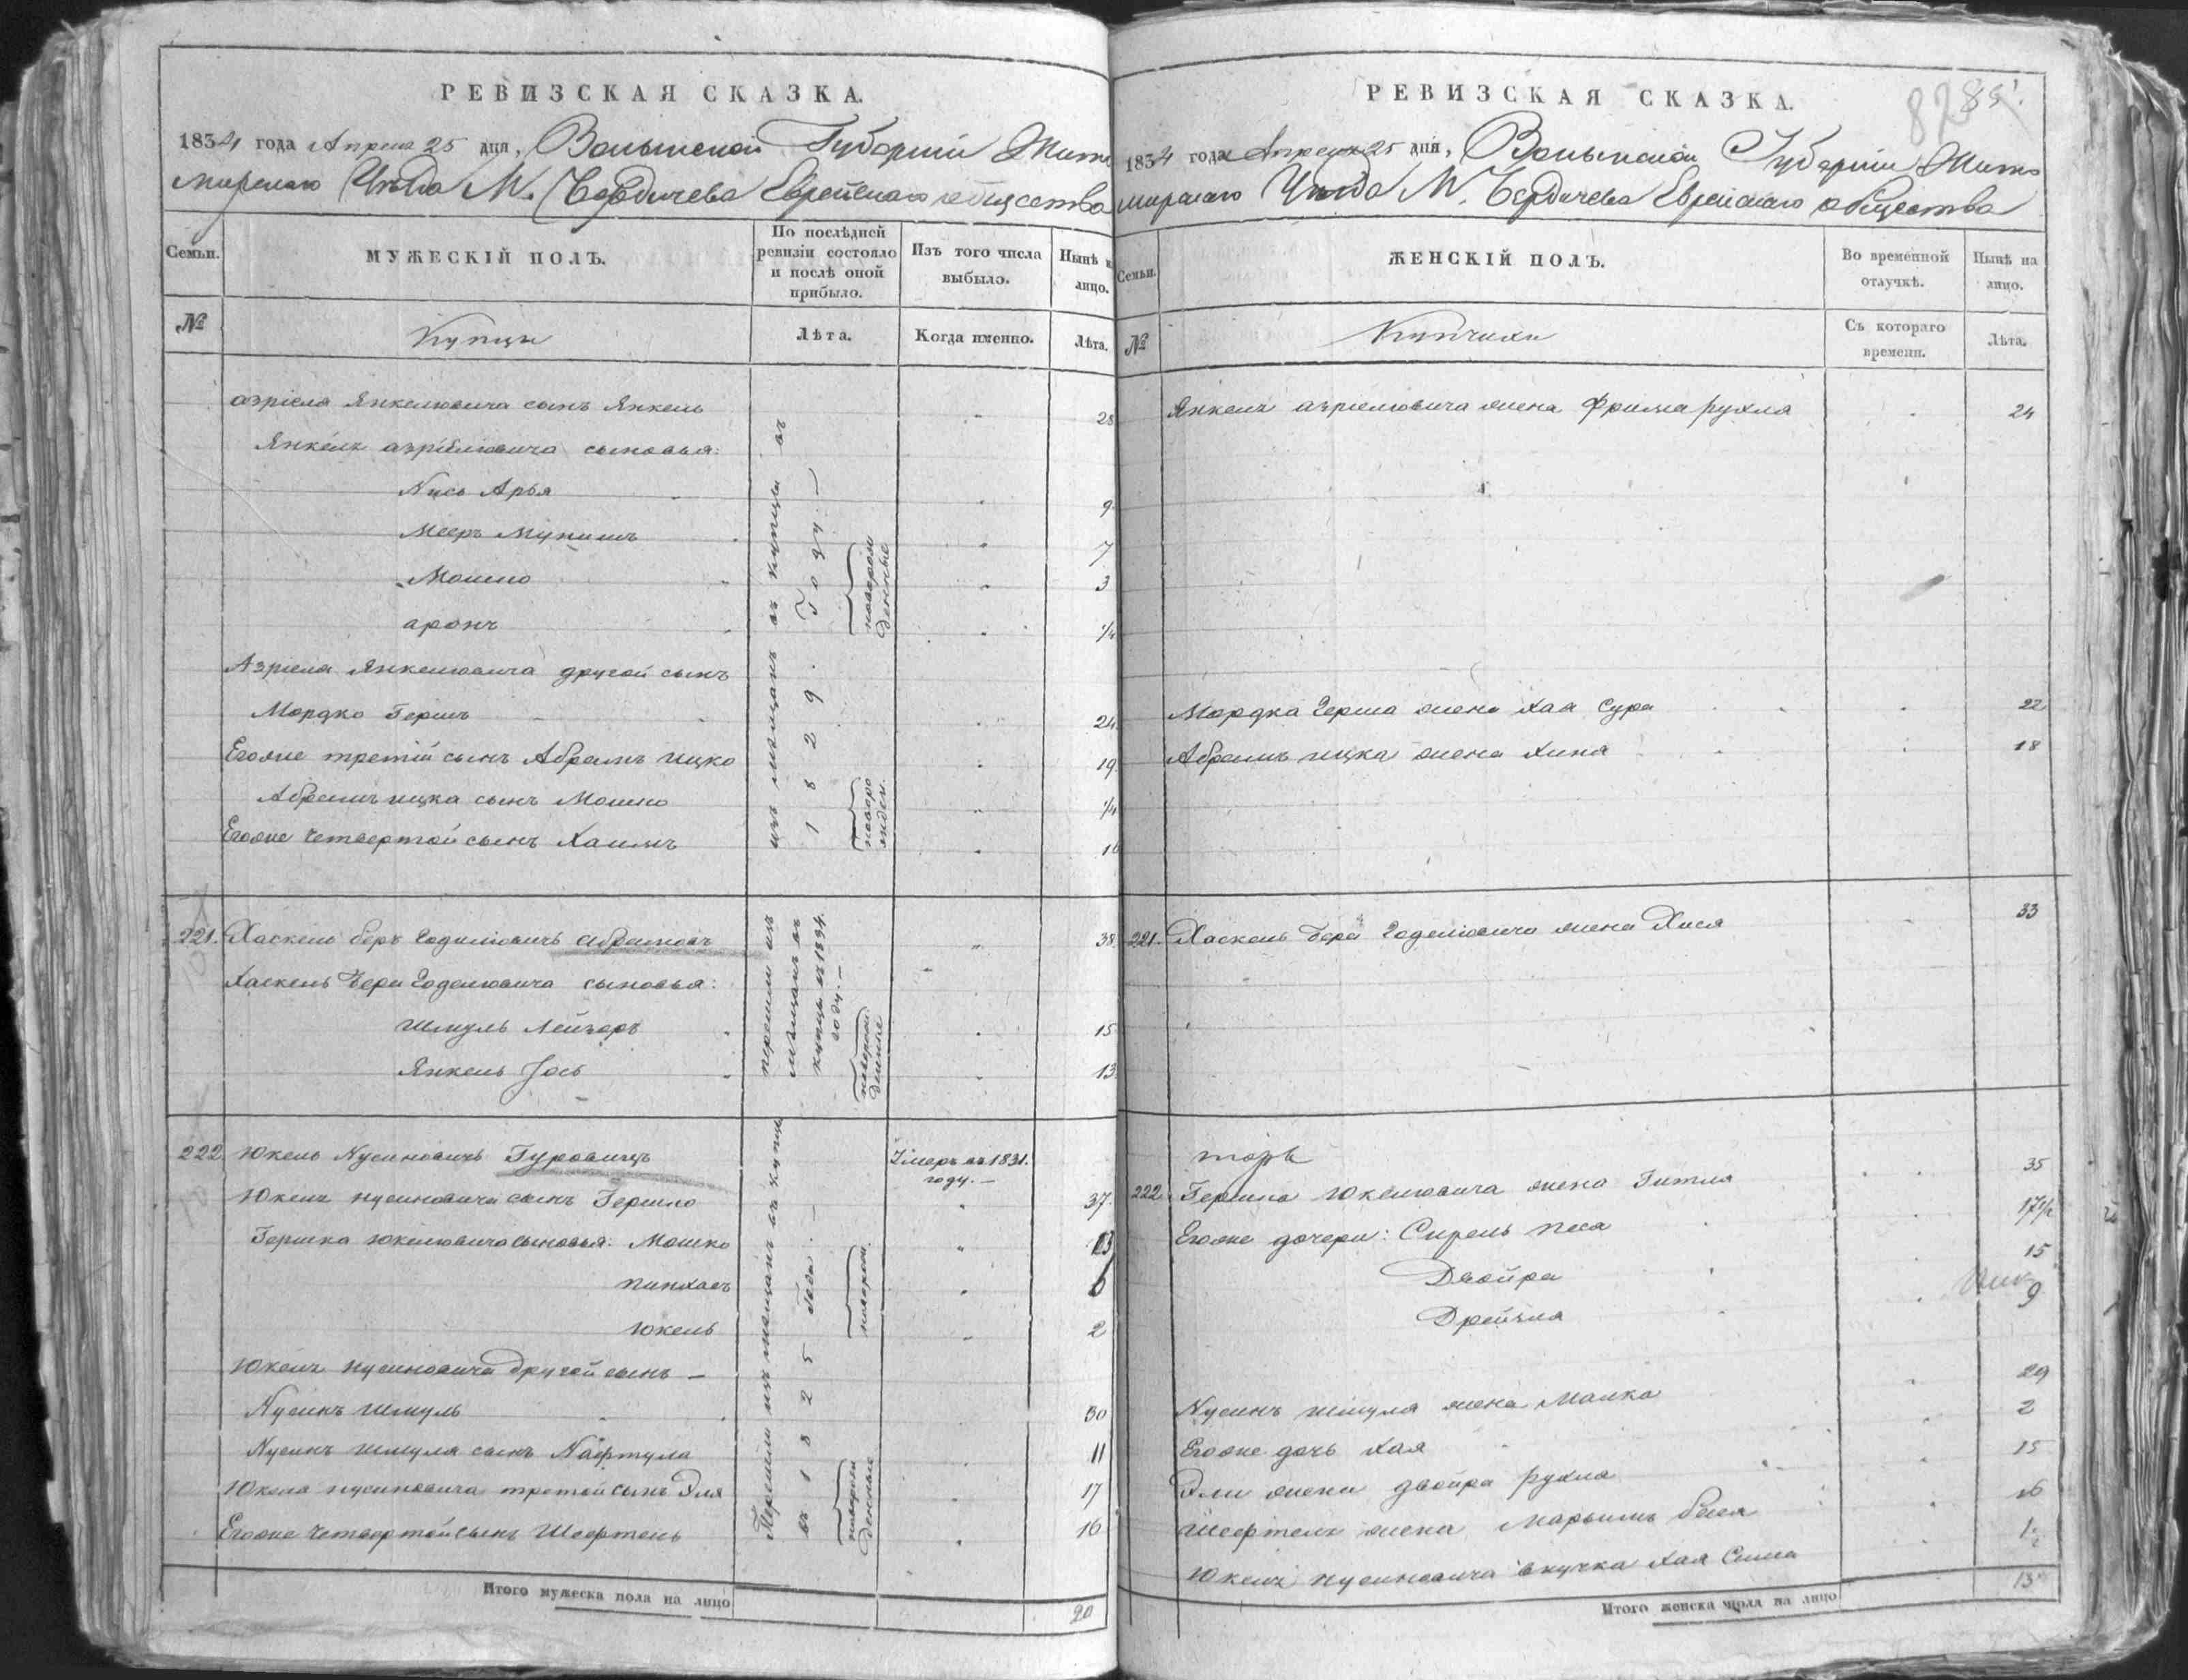 РЕВИЗСКАЯ СКАЗКА.
1834 года Апреля 25 дня, Волынской Губернии Жито
мирскаго Уѣзда М. Бердичева Еврейскаго общества
Семьи.
МУЖЕСКІЙ ПОЛЪ.
По послѣдней
ревизіи состояло
и послѣ оной
прибыло.
Изъ того числа
выбыло.
Нынѣ на
лицо.
№
Купцы
Лѣта.
Когда именно.
Лѣта.
азріеля Янкелювича сынъ Янкель 28
Янкеля азріелювича сыновья:
Нись Арья 9
Мееръ 7
Мошко 3
аронъ 1/4
Азріеля Янкелювича другой сынъ
Мордко Гершъ 24
Егоже третій сынъ Абрамъ ицко 19
Абрамъ ицка сынъ Мошко 1/4
Егоже четвертой сынъ Хаимъ 16
изъ мѣщанъ въ купцы въ
1829 Году
новорож
денные
новоро
жден.
221. Хаскель беръ Годелювичъ Абрамовъ 38
Хаскель бера Годелювича сыновья:
Шмуль Лейзеръ 15
Янкель Іось 13
перешли изъ
мѣщанъ въ
купцы въ 1834.
году.
новорож
денные
222 Юкель Нусиновичъ Гуровицъ Умеръ въ 1831.
году.
Юкеля нусиновича сынъ Гершко 37
Гершка юкелювича сыновья: Мошко 13
пинхасъ 6
юкель 2
Юкеля нусиновича другой сынъ
Нусинъ шмуль 30
Нусинъ шмуля сынъ Нафтула 11
Юкеля нусиновича третой сынъ Эля 17
Егоже четвертой сынъ Шефтель 16
Перешли изъ мещанъ въ купцы
въ 1825 года.
новорож.
новорож
денные
Итого мужеска пола на лицо 20
РЕВИЗСКАЯ СКАЗКА.
82
1834 года Апреля 25 дня, Волынской Губерніи Жито
мирскаго Уѣзда М. Бердичева Еврейскаго общества
Семьи.
ЖЕНСКІЙ ПОЛЪ.
Во временной
отлучкѣ.
Нынѣ на
лицо.
№
Купчихи
Съ котораго
времени.
Лѣта.
Янкеля азріелювича жена Фрима рухля 24
Мордка Герша жена Хая Сура 22
Абрамъ ицка жена Хина 18
221. Хаскель бера Годелювича жена Хася 33
222. Гершка Юкелювича жена Гитля 35
Егоже дочери: Сирель песя 17 1/2
Двойра 15
Дрейзля 9
Нусинъ шмуля жена Малка 29
Егоже дочь Хая 2
Эли жена двойра рухля 15
Шефтеля жена Марьямъ бейля 16
Юкеля нусиновича внучка Хая Сима 1
Итого женска пола на лицо 13